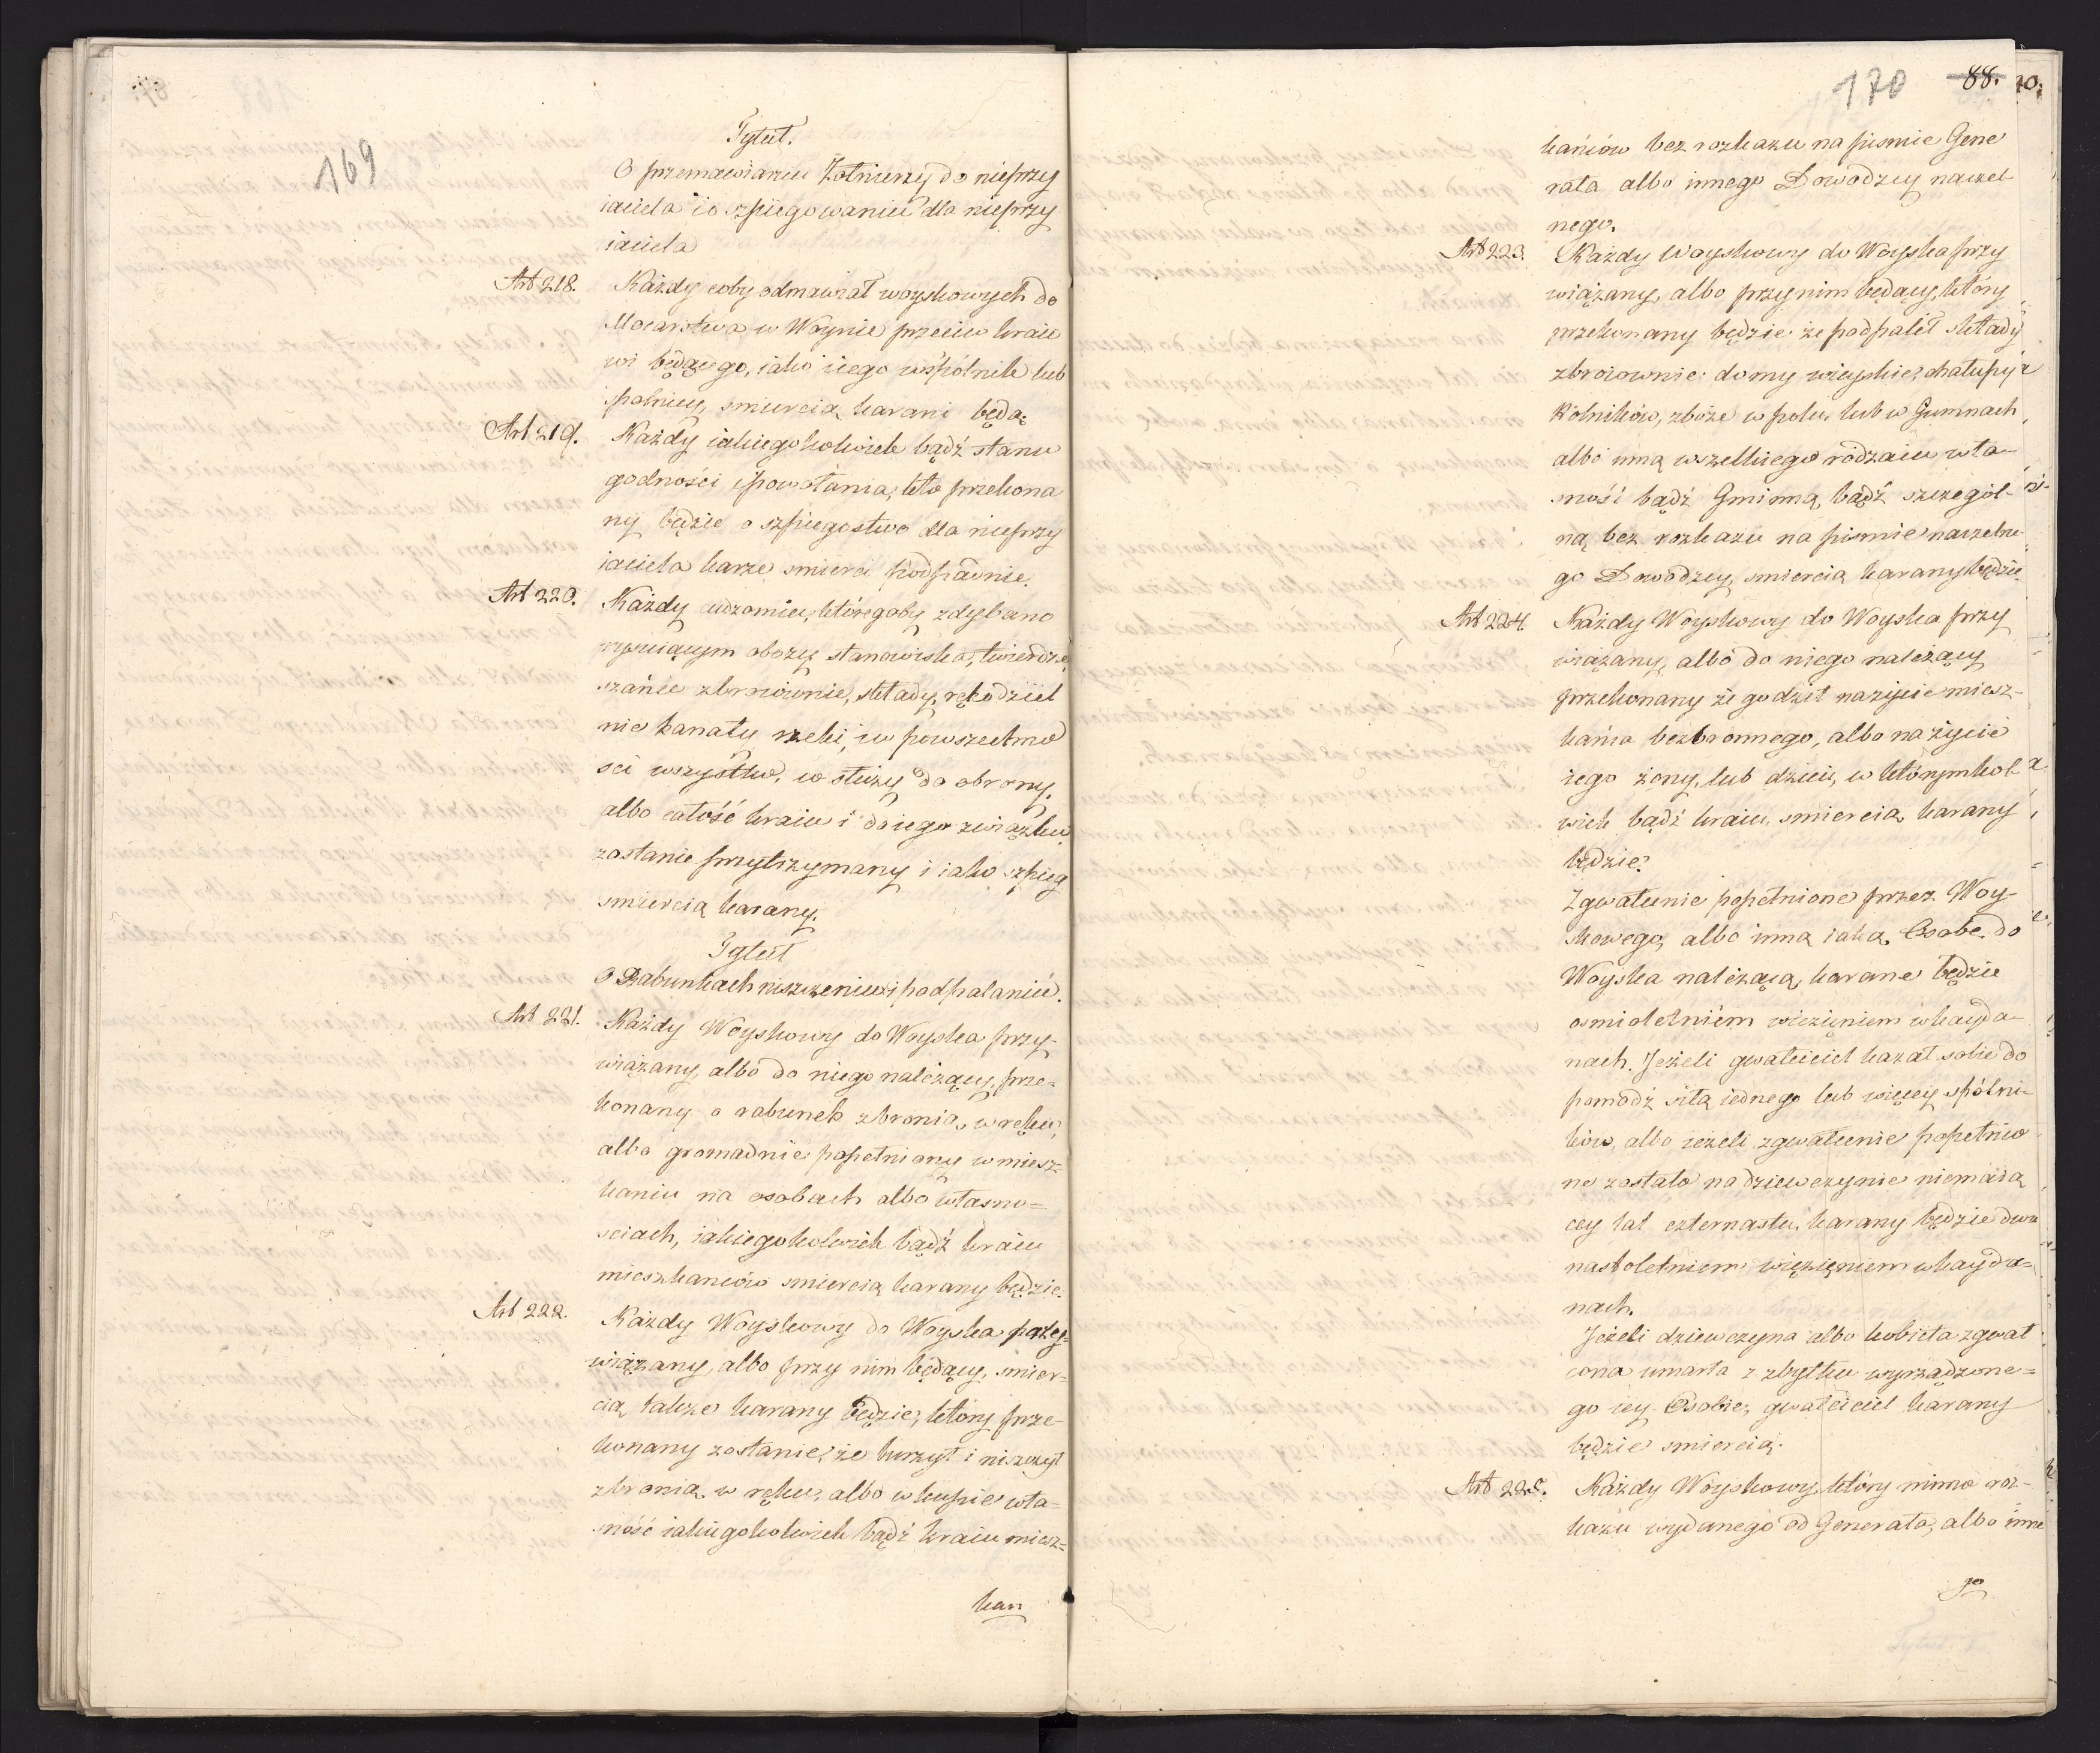 169
Tytuł.
O przemawianiu Żołnierzy do nieprzy
iaciela i o szpiegowaniu dla nieprzy
iaciela
Art 218. Każdy coby odmawiał woyskowych do
Mocarstwa w Woynie przeciw kraio
wi będącego, iako iego wspólnik lub
spólnicy, smiercią karani będą.
Art 219. Każdy iakiegokolwiek bądź stanu
godności i powołania, kto przekona
ny będzie o szpiegostwo dla nieprzy
iaciela karze smierci podpadnie.
Art 220. Każdy cudzomiec, któregoby zdybano
rysuiącym obozy, stanowiska, twierdze,
szańce zbroiownie, składy, rękodziel
nie kanały rzeki, i w powszechno
sci wszystko, co służy do obrony,
albo całość kraiu i do iego związku
zostanie przytrzymany i iako szpieg
smiercią karany.
Tytuł
O Rabunkach niszczeniu i podpalaniu.
Art 221. Każdy Woyskowy do Woyska przy-
wiązany, albo do niego należący, prze=
konany o rabunek z bronią w ręku,
albo gromadnie popełniony w miesz=
kaniu na osobach albo własno=
sciach, iakiegokolwiek bądź kraiu
mieszkańców smiercią karany będzie.
Art 222. Każdy Woyskowy do Woyska przy=
wiązany, albo przy nim będący, smier=
cią także karany będzie, który prze-
konany zostanie, że burzył i niszczył
z bronią w ręku, albo w kupie wła=
sność iakiegokolwiek bądź kraiu miesz=
kan
170 88.
kańców bez rozkazu na pismie Gene
rała albo innego Dowodzcy naczel
nego.
Art 223. Każdy Woyskowy do Woyska przy
wiązany, albo przy nim będący, który
przekonany będzie że podpalił składy
zbroiownie domy wieyskie, chałupy
Rolników, zboże w polu, lub w Gumnach
albo inną wszelkiego rodzaiu wła-
sność bądź Gminną, bądź szczegól-
ną bez rozkazu na pismie naczelne
go Dowodzcy, smiercią karany będzie.
Art 224. Każdy Woyskowy do Woyska przy
wiązany, albo do niego należący
przekonany że godził na życie miesz-
kańca bezbronnego, albo na życie
iego żony, lub dzieci, w którymkol
wiek bądź kraiu, smiercią karany
będzie.
Zgwałcenie popełnione przez Woy-
skowego, albo inną iaką Osobę do
Woyska należącą, karane będzie
osmioletniém więzieniem w kayda-
nach. Jeżeli gwałciciel kazał sobie do
pomodz siłą iednego lub więcey spólni-
ków, albo ieżeli zgwałcenie popełnio
ne zostało na dziewczynie niemaią
cey lat czternastu, karany będzie dwu
nastoletniem więzieniem w kayda=
nach.
Jeżeli dziewczyna albo kobieta zgwał
cona umarła z zbytku wyrządzone=
go iey Osobie, gwałciciel karany
będzie smiercią.
Art 225. Każdy Woyskowy, który mimo roz-
kazu wydanego od Generała, albo inne
go